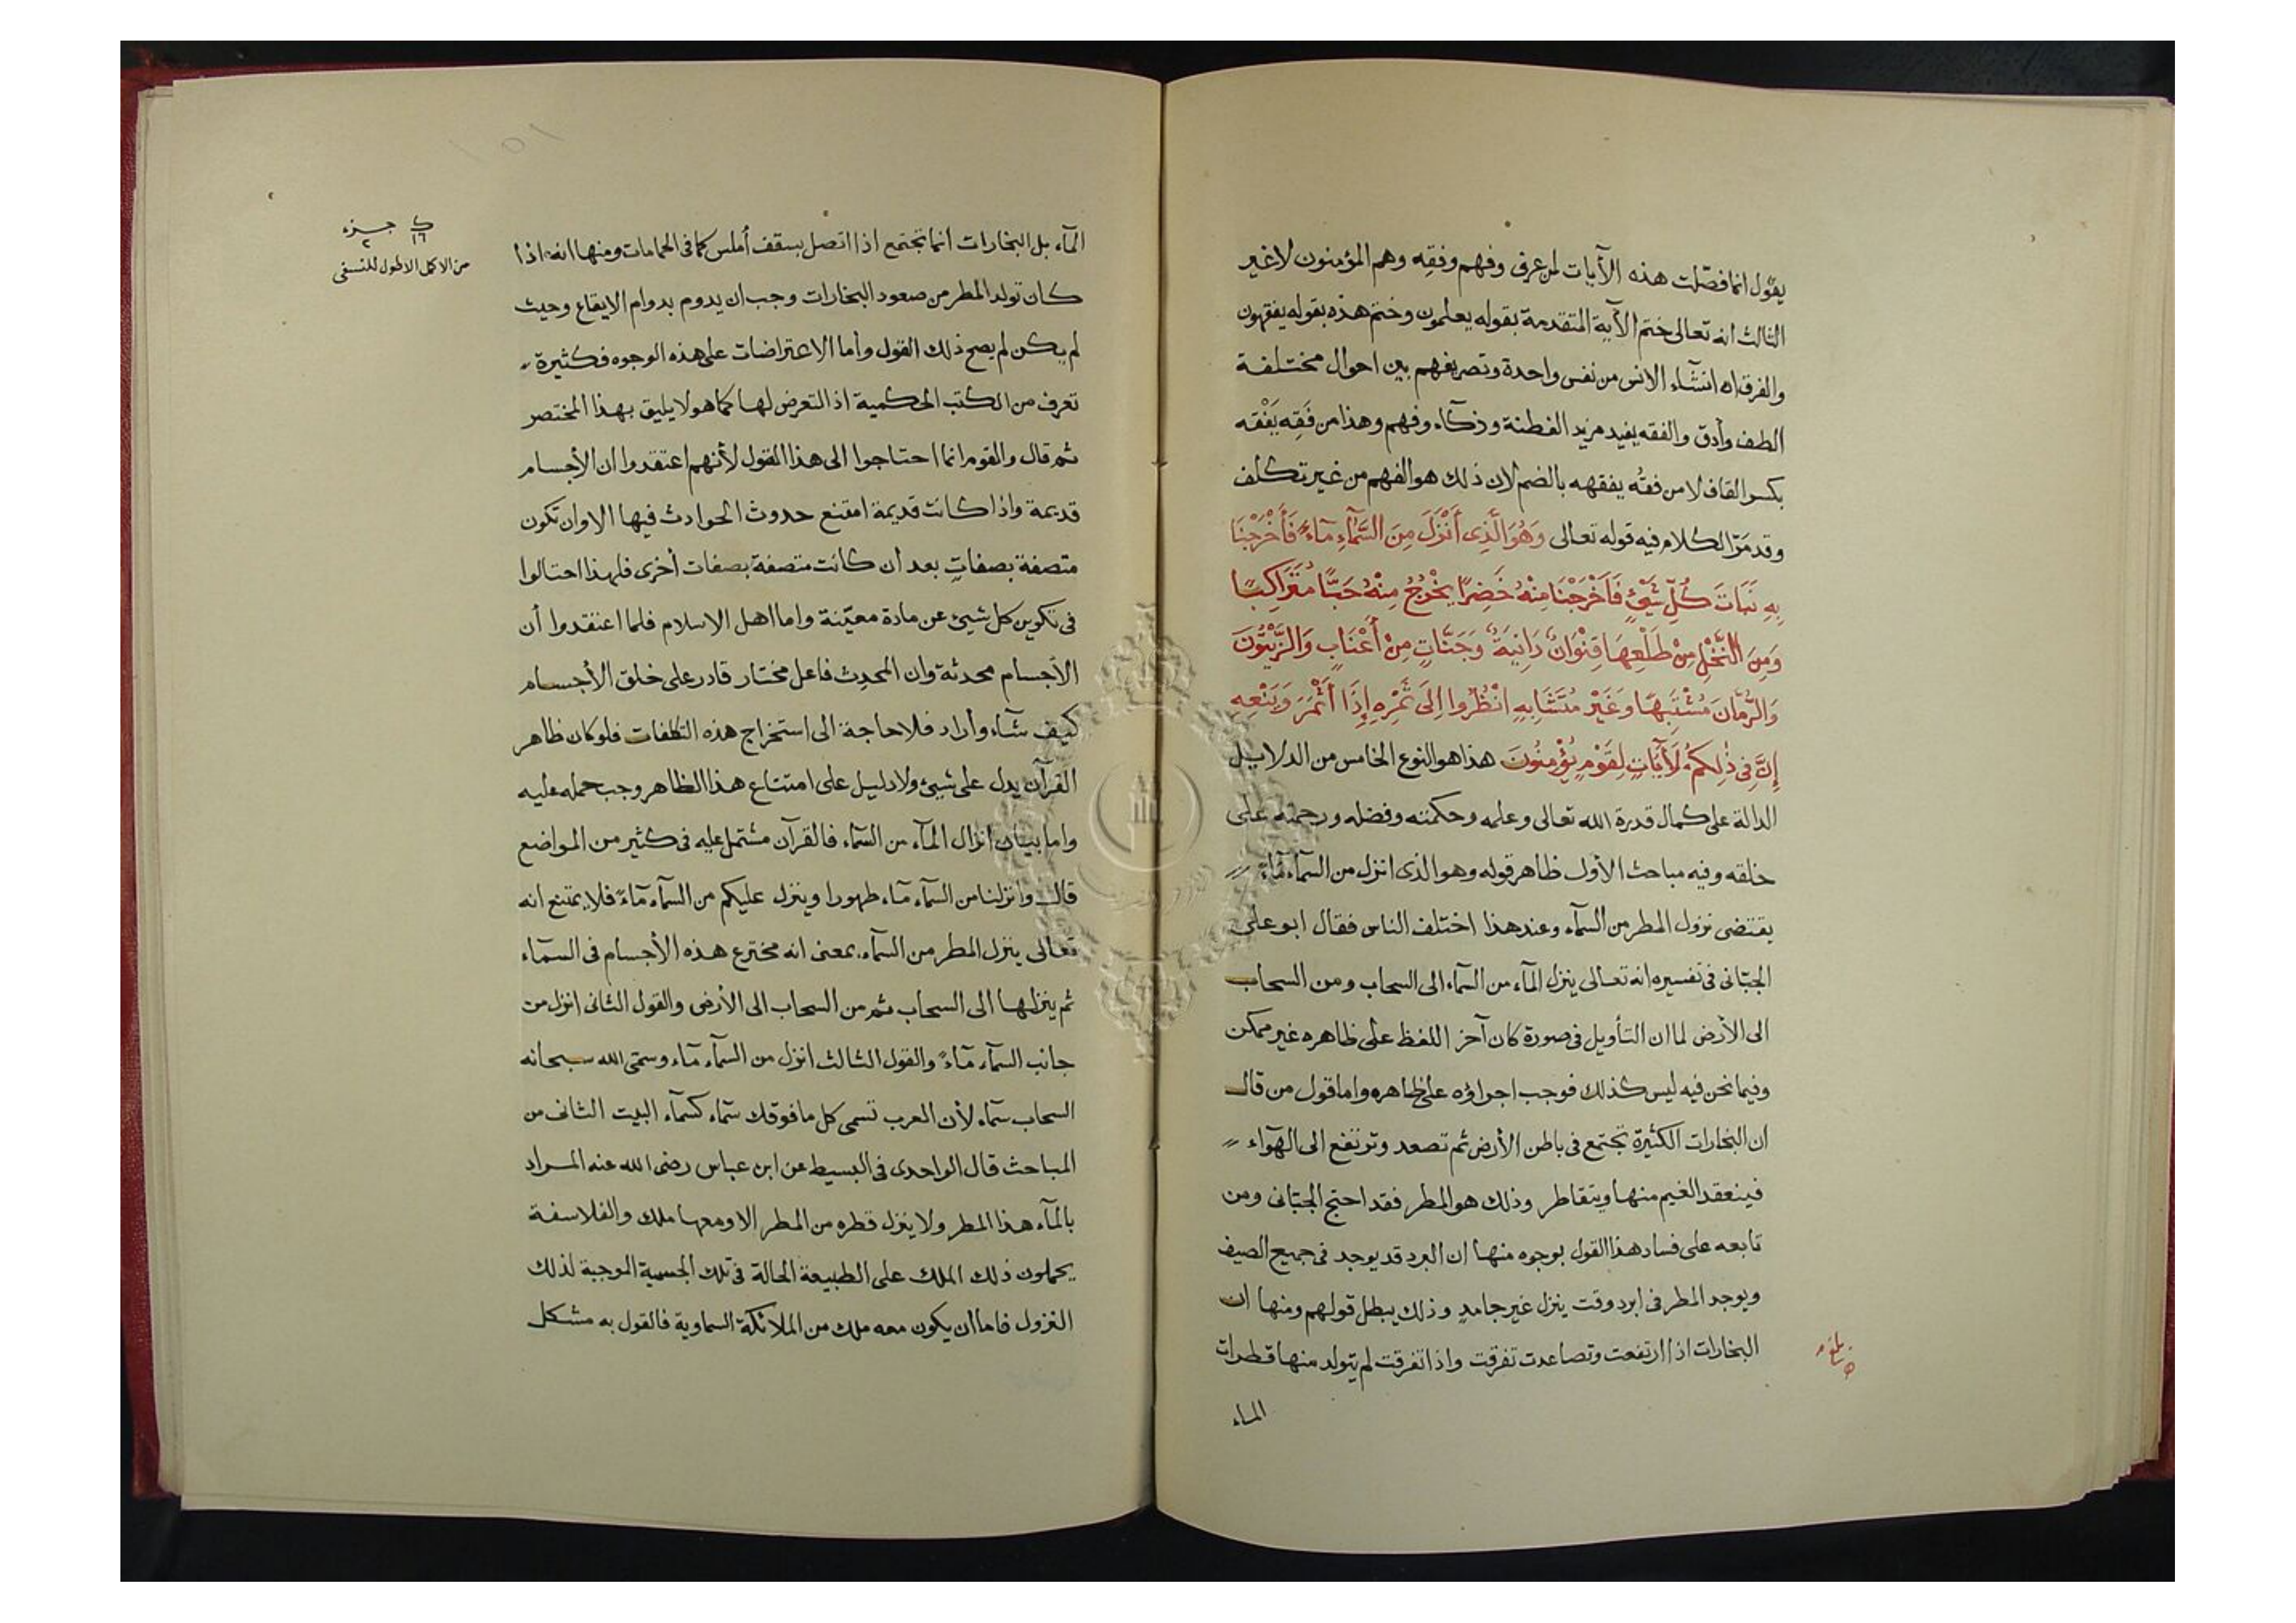 يقول انما فصّلت هذه الآيات لمن عرف وفهم وفقه وهم المؤمنون لا غير
الثالث انه تعالى ختم الآية المتقدمة بقوله يعلمون وختم هذه بقوله يفقهون
والفرق ان انشآء الانس من نفس واحدة وتصريفهم بين احوال مختلفة
الطف وأدق والفقه يفيد مزيد الفطنة وذكآء وفهم وهذا من فَقِه يَفْقَه
بكسر القاف لا من فقُه يفقهه بالضم لان ذلك هو الفهم من غير تكلف
وقد مَرّ الكلام فيه قوله تعالى وَهُوَ الَّذِى أَنْزَلَ مِنَ السَّمَآءِ مَآءً فَأَخْرَجْنَا
بِهِ نَبَاتَ كُلِّ شَيْئٍ فَأَخْرَجْنَا مِنْهُ خَضِرًا يُخْرِجُ مِنْهُ حَبًّا مُتَرَاكِبًا
وَمِنَ النَّخْلِ مِنْ طَلْعِهَا قِنْوَانٌ دَانِيَةٌ وَجَنَّاتٍ مِنْ أَعْنَابٍ وَالزَّيْتُونَ
وَالرُّمَّانَ مُشْتَبِهًا وَغَيْرَ مُتَشَابِهٍ انْظُرُوا اِلَى ثَمَرِهِ إِذَا أَثْمَرَ وَيَنْعِهِ
إِنَّ فِى ذٰلِكُمْ لَآيَاتٍ لِقَوْمٍ يُؤْمِنُونَ هذا هو النوع الخامس من الدلايل
الدالة على كمال قدرة الله تعالى وعلمه وحكمته وفضله ورحمته على
خلقه وفيه مباحث الأول ظاهر قوله وهو الذى انزل من السمآء مآء
يقتضى نزول المطر من السمآء وعند هذا اختلف الناس فقال ابو على
الجبّائى فى تفسيره انه تعالى ينزل المآء من السمآء الى السحاب ومن السحاب
الى الأرض لما ان التأويل فى صورة كان آخر اللفظ على ظاهره غير ممكن
وفيما نحن فيه ليس كذلك فوجب اجراؤه على ظاهره واما قول من قال
ان البخارات الكثيرة تجتمع فى باطن الأرض ثم تصعد وترتفع الى الهوآء
فينعقد الغيم منها ويتقاطر وذلك هو المطر فقد احتج الجبّائى ومن
تابعه على فساد هذا القول بوجوه منها ان البرد قد يوجد فى جميع الصيف
ويوجد المطر فى ابرد وقت ينزل غير جامدٍ وذلك يبطل قولهم ومنها ان
البخارات اذا ارتفعت وتصاعدت تفرقت واذا تفرقت لم يتولد منها قطرات
الماء
المآء بل البخارات انما تجتمع اذا اتصل بسقف أملس كما فى الحمامات ومنها انه اذا
كان تولد المطر من صعود البخارات وجب ان يدوم بدوام الايقاع وحيث
لم يكن لم يصح ذلك القول وأما الاعتراضات على هذه الوجوه فكثيرة
تعرف من الكتب الحكمية اذ التعرض لها كما هو لا يليق بهذا المختصر
ثم قال والقوم انما احتاجوا الى هذا القول لأنهم اعتقدوا ان الأجسام
قديمة واذا كانت قديمة امتنع حدوث الحوادث فيها الا وان تكون
متصفة بصفاتٍ بعد أن كانت متصفة بصفات أخرى فلهذا احتالوا
فى تكوين كل شيئ عن مادة معيّنة واما اهل الاسلام فلما اعتقدوا أن
الأجسام محدثة وان المحدِث فاعل مختار قادر على خلق الأجسام
كيف شآء وأراد فلا حاجة الى استخراج هذه التكلفات فلو كان ظاهر
القرآن يدل على شيئ ولا دليل على امتناع هذا الظاهر وجب حمله عليه
واما بيان انزال المآء من السمآء فالقرآن مشتمل عليه فى كثير من المواضع
قال وانزلنا من السمآء مآء طهورا وينزل عليكم من السمآء مآءً فلا يمتنع انه
تعالى ينزل المطر من السمآء بمعنى انه مخترع هذه الأجسام فى السمآء
ثم ينزلها الى السحاب ثم من السحاب الى الأرض والقول الثانى انزل من
جانب السمآء مآءً والقول الثالث انزل من السمآء مآء وسمّى الله سبحانه
السحاب سمآء لأن العرب تسمى كل ما فوقك سمآء كسمآء البيت الثانى من
المباحث قال الواحدى فى البسيط عن ابن عباس رضى الله عنه المراد
بالمآء هذا المطر ولا ينزل قطرة من المطر الا ومعها ملك والفلاسفة
يحملون ذلك الملك على الطبيعة الحالة فى تلك الجسمية الموجبة لذلك
النزول فاما ان يكون معه ملك من الملائكة السماوية فالقول به مشكل
ك جزء
١٦ ٢
من الاكمل الاطول للنسفى